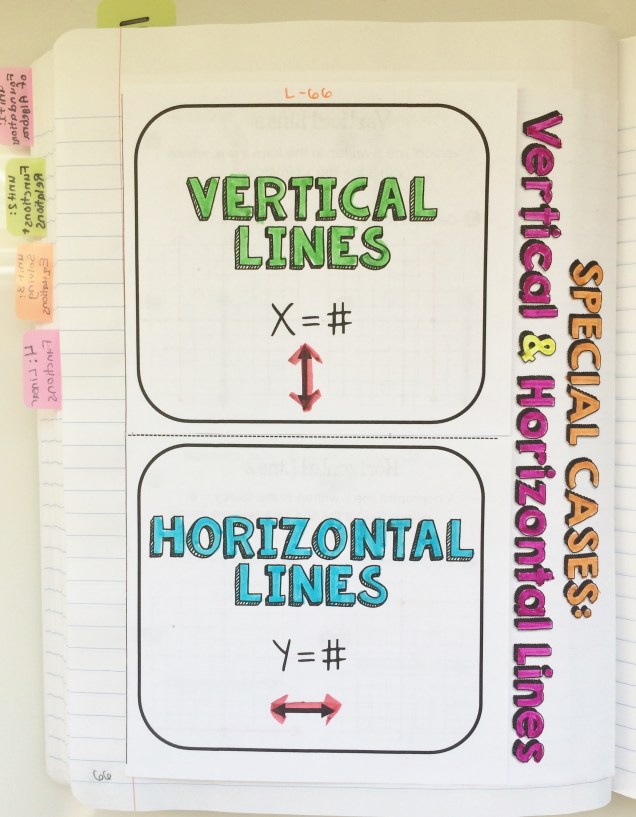 L-66
VERTICAL
LINES
X = #
HORIZONTAL
LINES
Y = #
SPECIAL CASES:
Vertical & Horizontal Lines
66